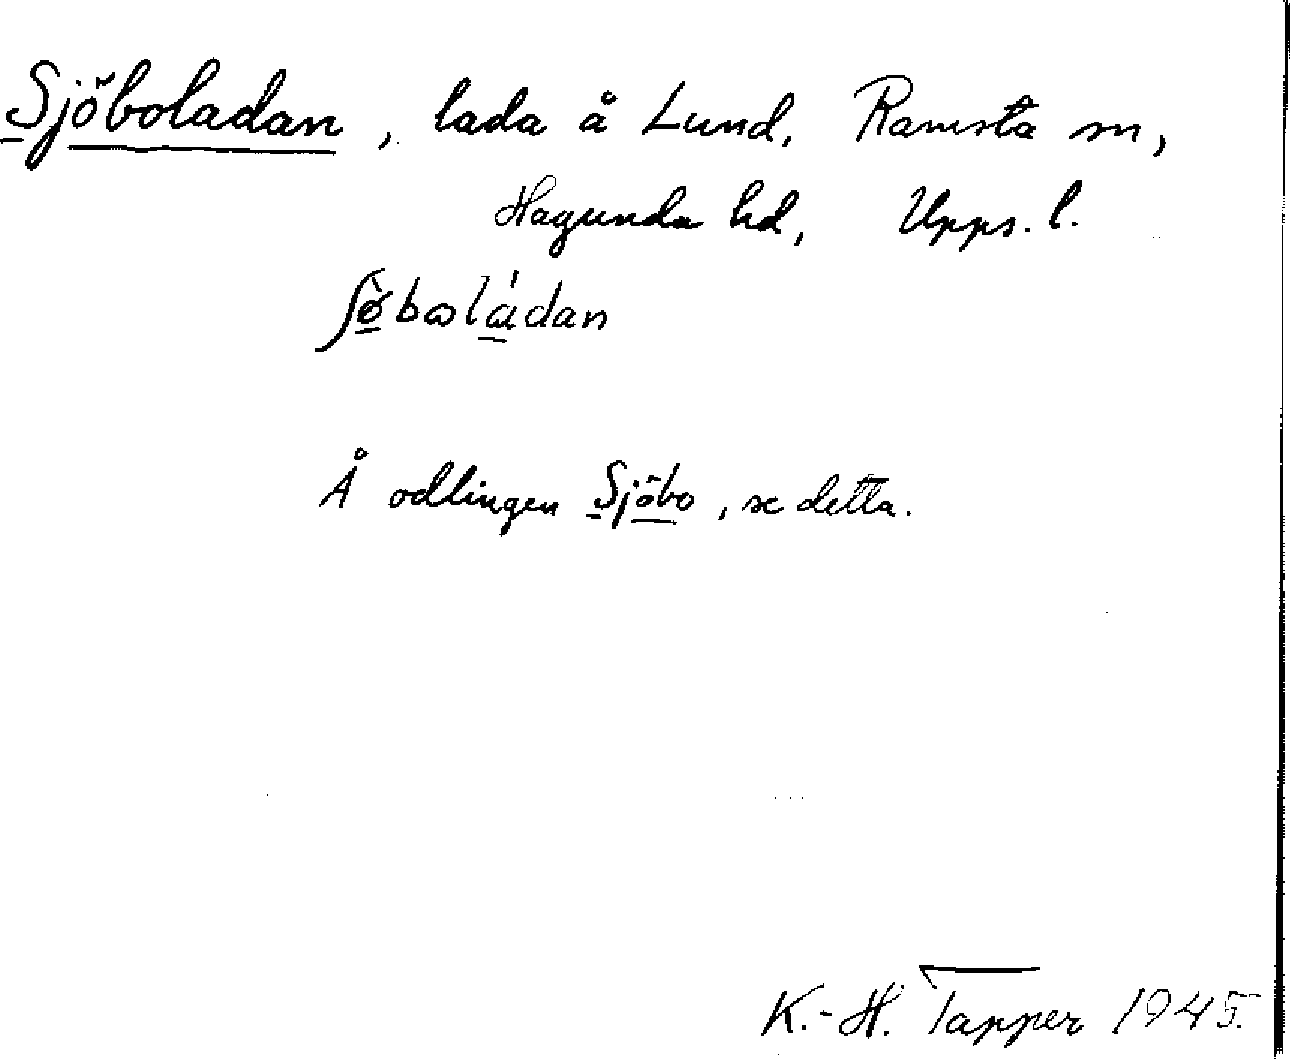 Sjöboladan, lada å Lund, Ramsta sn,
Hagunda hd, Upps. l.
ʃø̀bωlɑ́dan
Å odlingen Sjöbo, se detta.
K.-H. Tapper 1945.